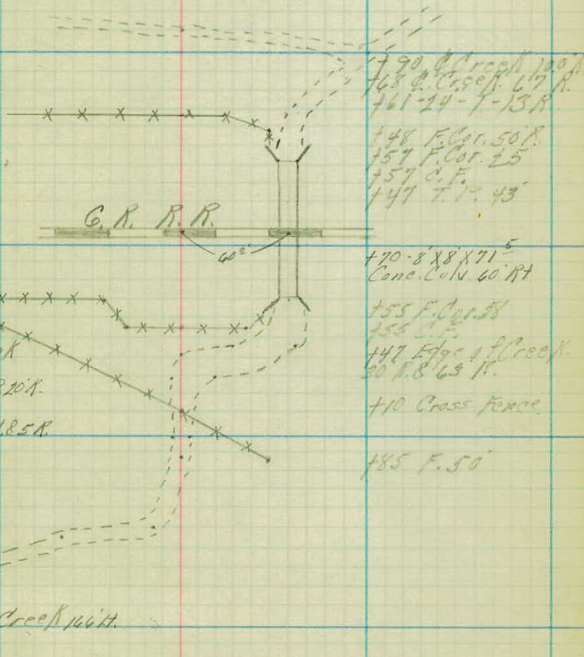 +90 ₵ Creek 100 R
+68 ₵ Creek 67 R.
+61-24-T-13 R
+48 F. Cor. 50 R.
+57 F. Cor. 25
+57 C. F.
+47 T. P. 43'
G. R. R. R.
60²'
+70-8'X8'X71⁵
Conc. Culv. 60' Rt
+55 F. Cor. 58
+55 C. F.
+47 Edge of Creek
30 R. & 63 R.
20 R.
+10 Cross Fence
.85 R.
+85 F. 50'
Creek